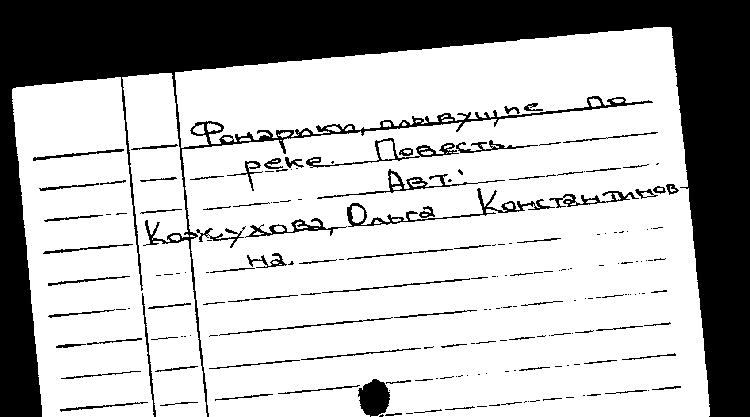 Фонарики, плывущие по
реке. Повесть.
Авт.:
Кожухова, Ольга Константинов-
на.